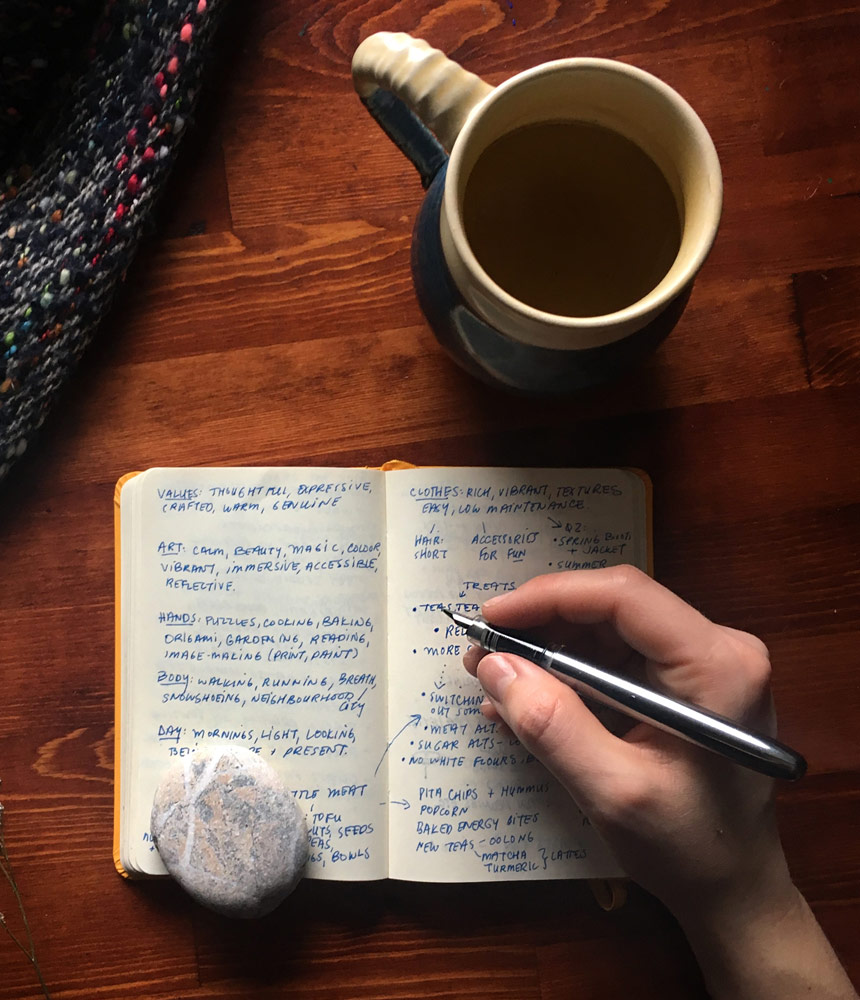 VALUES: THOUGHTFUL, EXPRESSIVE,
CRAFTED, WARM, GENUINE
ART: CALM, BEAUTY, MAGIC, COLOUR,
VIBRANT, IMMERSIVE, ACCESSIBLE,
REFLECTIVE.
HANDS: PUZZLES, COOKING, BAKING,
ORIGAMI, GARDENING, READING,
IMAGE-MAKING (PRINT, PAINT)
BODY: WALKING, RUNNING, BREATH,
SNOWSHOEING, NEIGHBOURHOOD/
CITY
DAY: MORNINGS, LIGHT, LOOKING,
+ PRESENT.
MEAT
TOFU
SEEDS
BOWLS
CLOTHES: RICH, VIBRANT, TEXTURES
EASY, LOW MAINTENANCE
HAIR:
SHORT
ACCESSORIES
FOR FUN
Q2:
• SPRING BOOTS
+ JACKET
• SUMMER
TREATS
• TEAS,
• MORE
• MEAT ALT.
• SUGAR ALTS-
• NO WHITE FLOURS,
PITA CHIPS + HUMMUS
POPCORN
BAKED ENERGY BITES
NEW TEAS - OOLONG
MATCHA } LATTES
TURMERIC